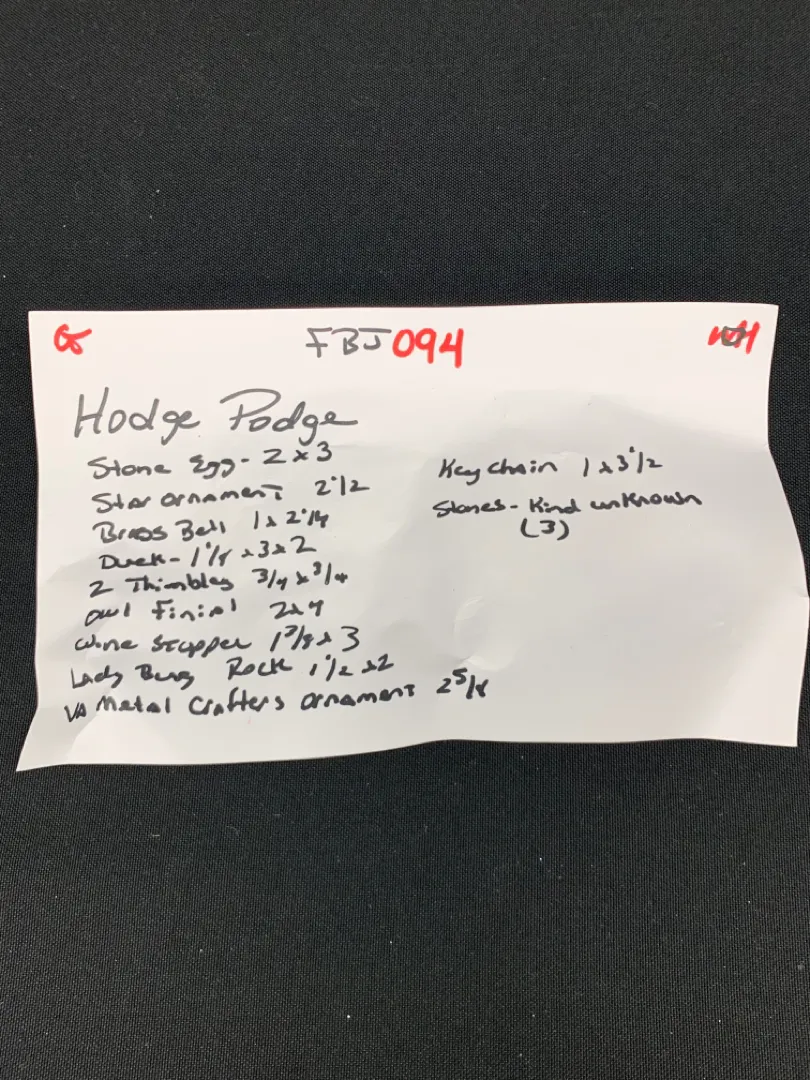 G FBJ094
Hodge Podge
Stone Egg - 2 x 3
Star ornament 2 1/2
Brass Bell 1 x 2 1/4
Duck - 1 1/8 x 3 x 2
2 Thimbles 3/4 x 3/4
owl Finial 2x4
wine stopper 1 7/8 x 3
Lady Bug Rock 1 1/2 x2
VA Metal Crafters ornament 2 5/8
Keychain 1 x 3 1/2
Stones - Kind unknown
(3)